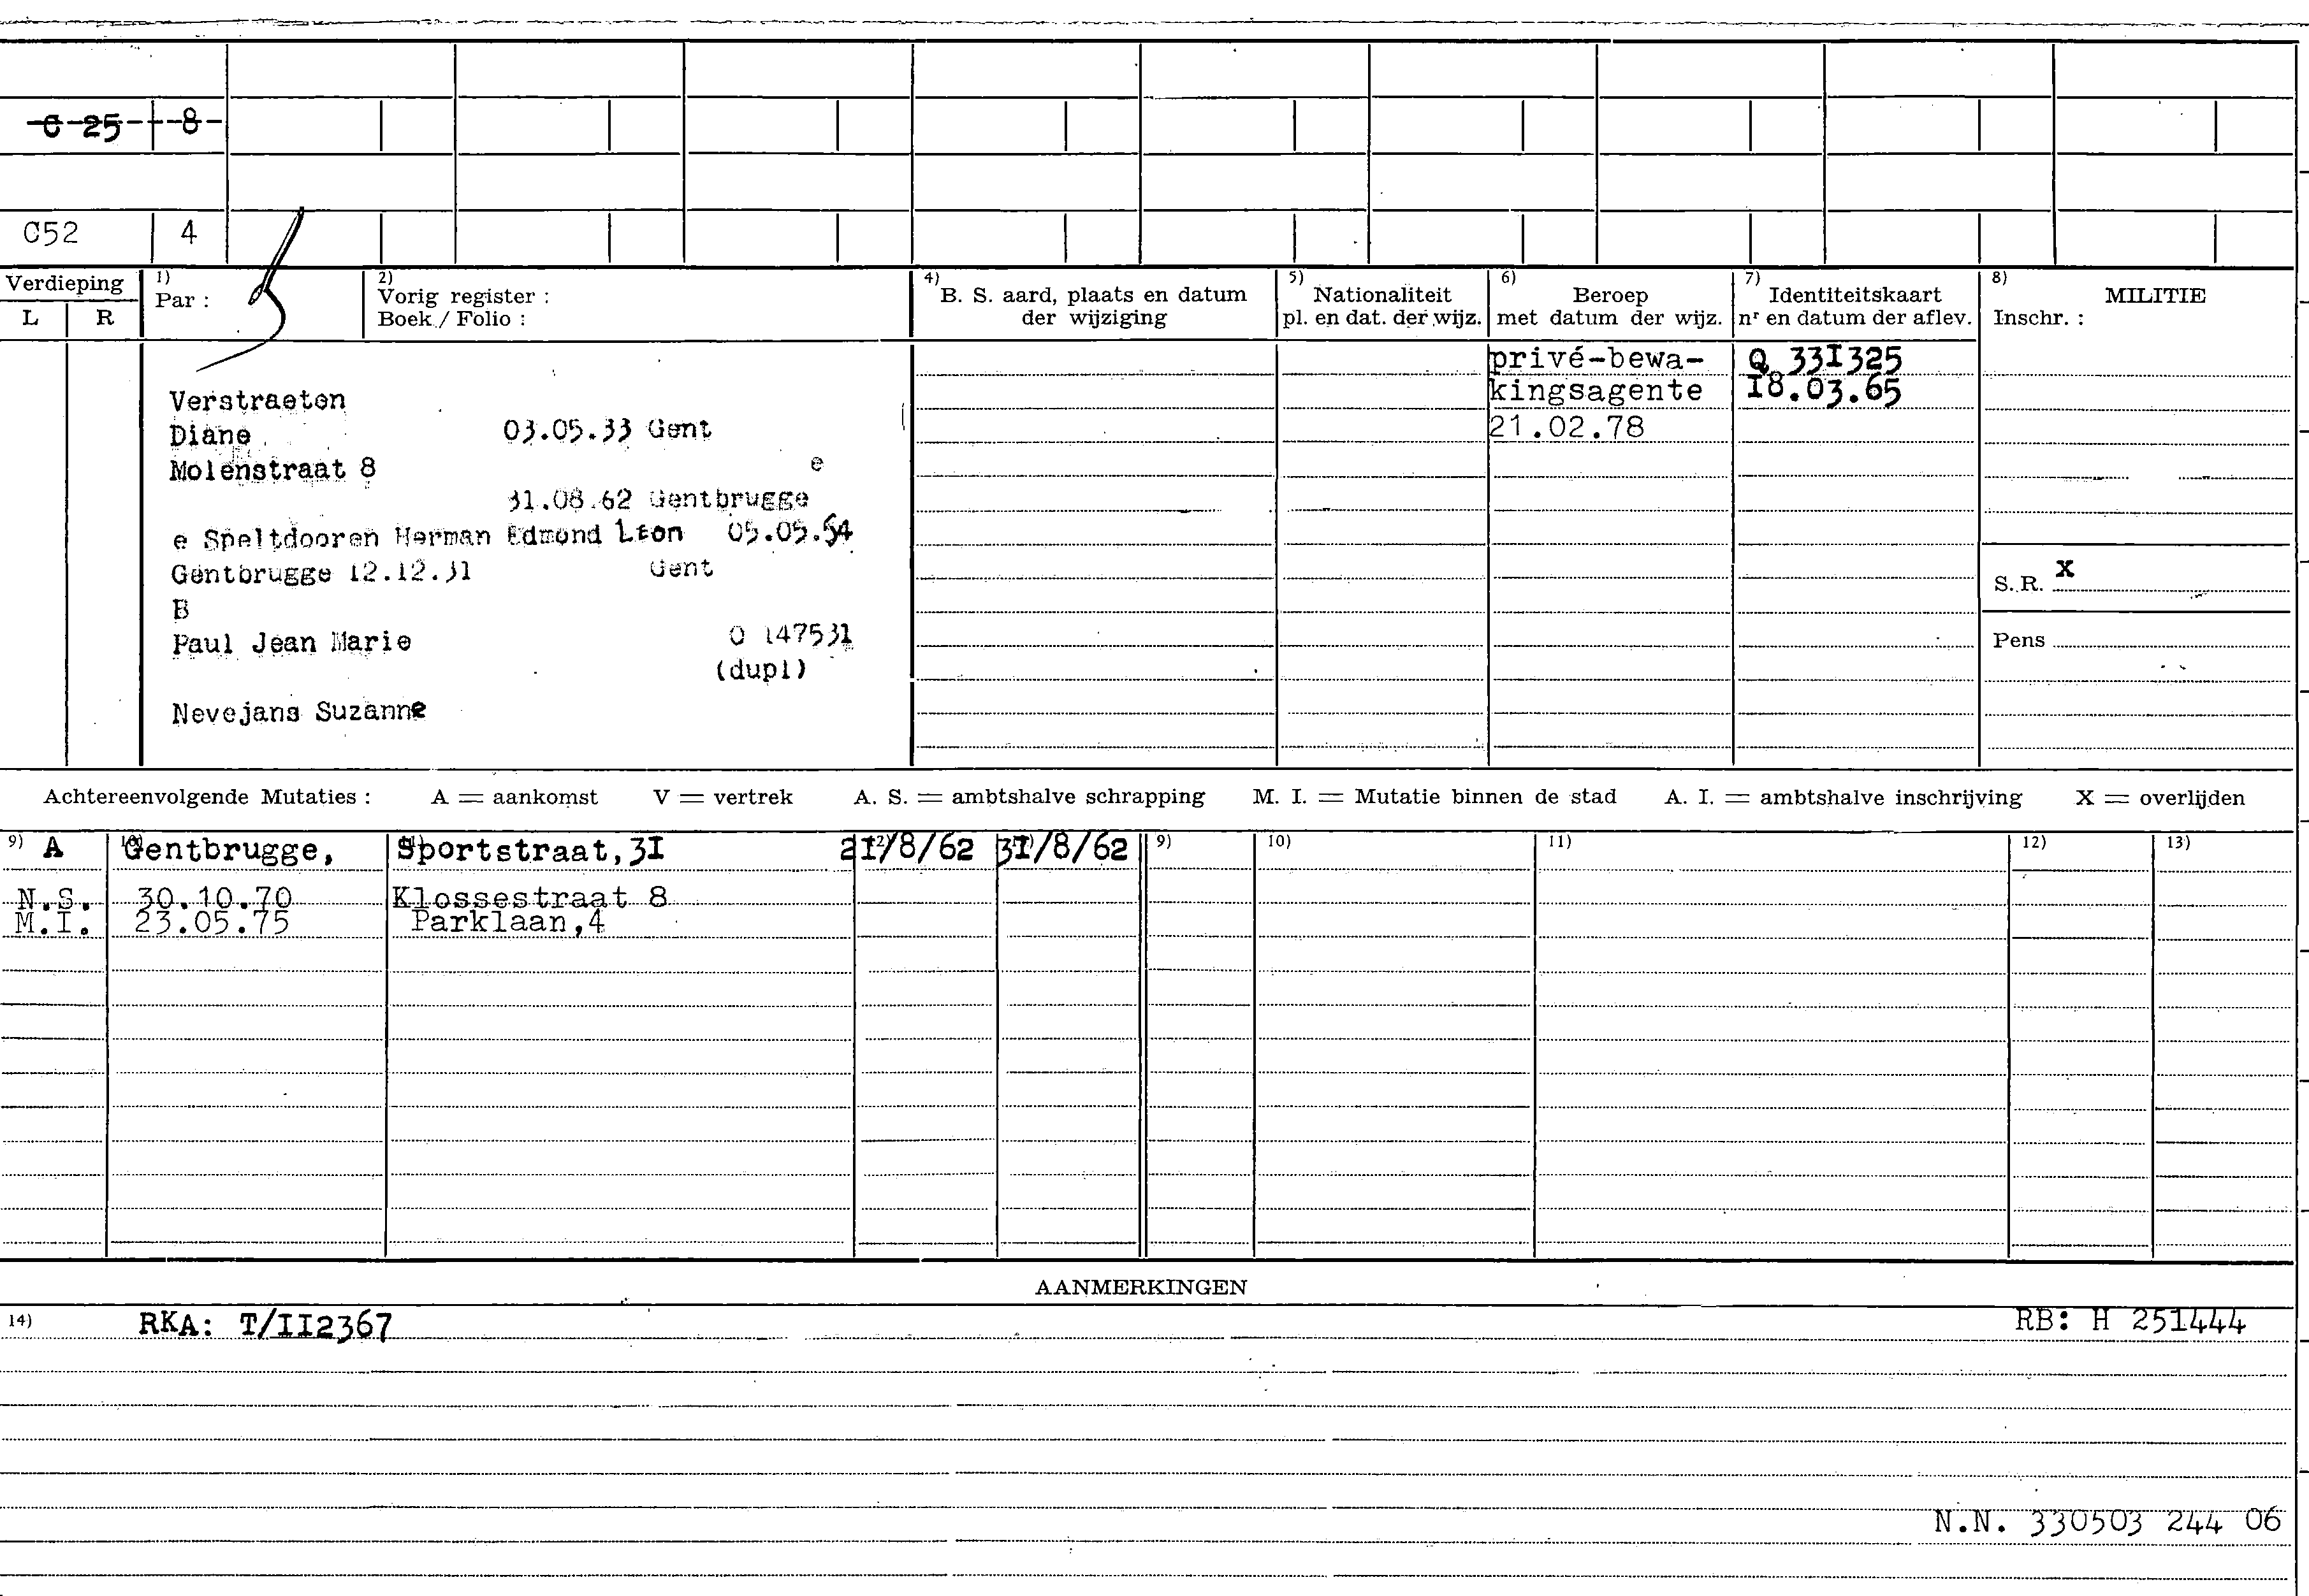 C 25 8
C52 4
Verdieping
L R
1)
Par :
2)
Vorig register :
Boek / Folio :
4)
B. S. aard, plaats en datum
der wijziging
5)
Nationaliteit
pl. en dat. der wijz.
6)
Beroep
met datum der wijz.
7)
Identiteitskaart
nr en datum der aflev.
8)
MILITIE
Inschr. :
privé-bewa-
kingsagente
21.02.78
Q 33I325
I8.03.65
Verstraeten
Diane 03.05.33 Gent
Molenstraat 8 e
31.08.62 Gentbrugge
e Speltdooren Herman Edmond Léon 05.05.54
Gentbrugge 12.12.31 Gent
B
Paul Jean Marie O 147531
(dupl)
Nevejans Suzanne
S. R. X
Pens
Achtereenvolgende Mutaties : A = aankomst V = vertrek A. S. = ambtshalve schrapping M. I. = Mutatie binnen de stad A. I. = ambtshalve inschrijving X = overlijden
9) A Gentbrugge, Sportstraat,3I 2I/8/62 3I/8/62 9) 10) 11) 12) 13)
N.S. 30.10.70 Klossestraat 8
M.I. 23.05.75 Parklaan,4
AANMERKINGEN
14) RKA: T/II2367 RB: H 251444
N.N. 330503 244 06